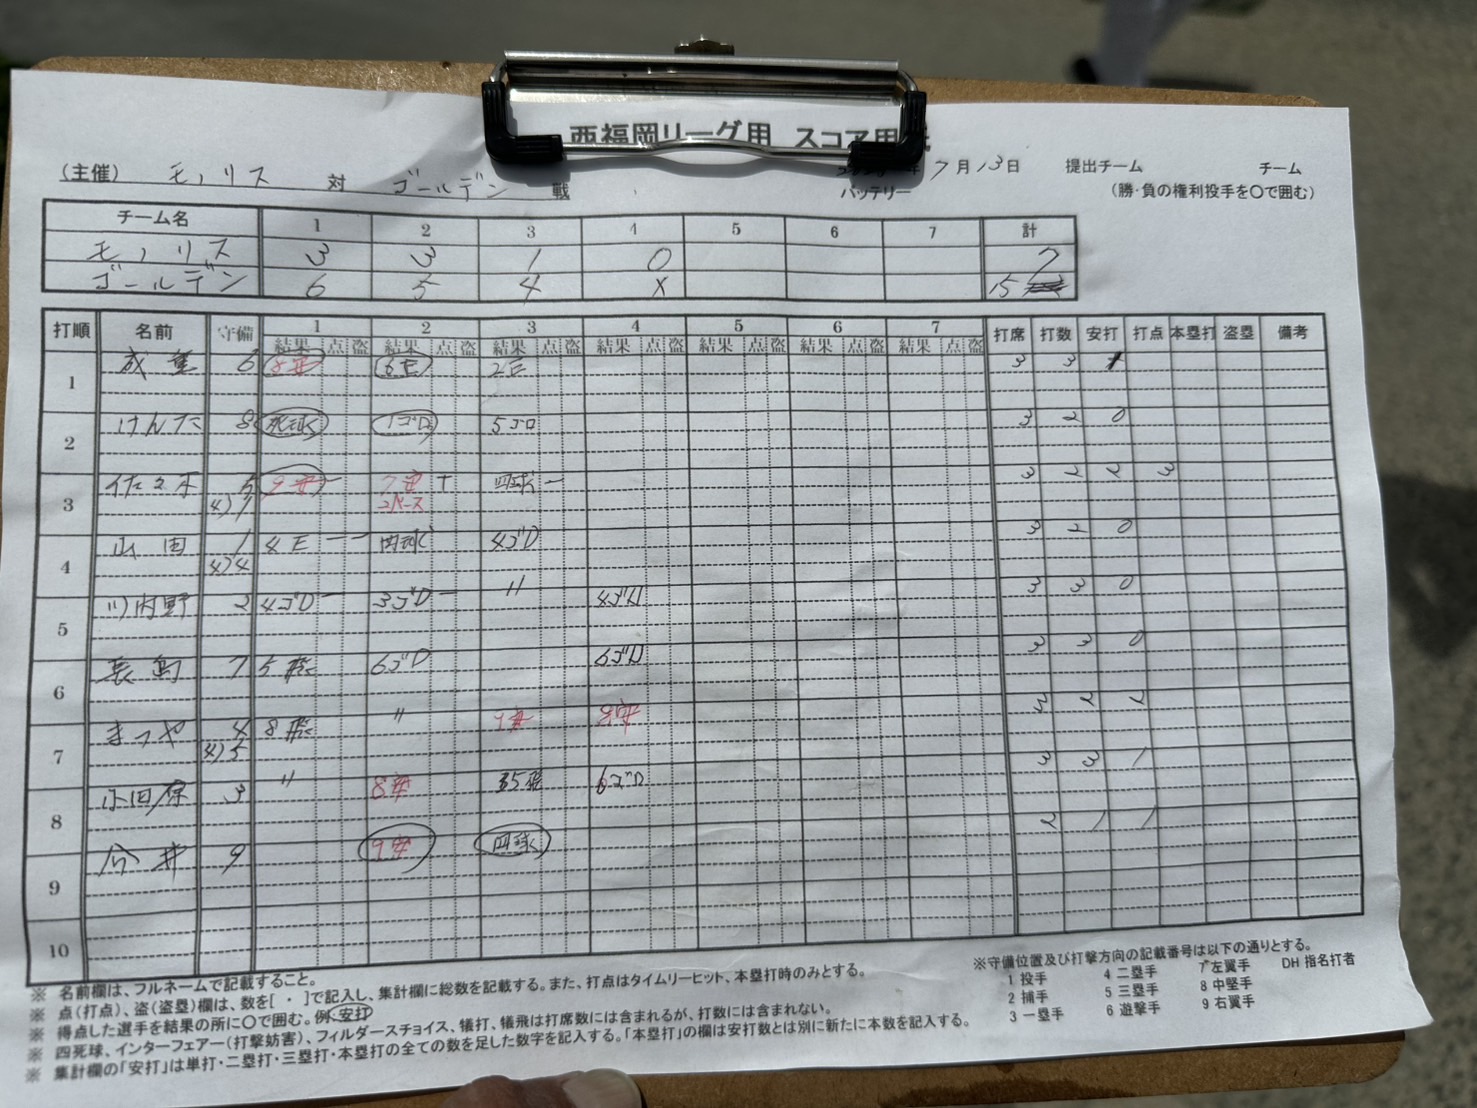 西福岡リーグ用 スコア用紙
(主催) モノリス 対 ゴールデン 戦 年 7月13日 提出チーム チーム
バッテリー (勝・負の権利投手を〇で囲む)
チーム名 1 2 3 4 5 6 7 計
モノリス 3 3 1 0 7
ゴールデン 6 5 4 X 15
打順 名前 守備 1 2 3 4 5 6 7 打席 打数 安打 打点 本塁打 盗塁 備考
結果 点 盗 結果 点 盗 結果 点 盗 結果 点 盗 結果 点 盗 結果 点 盗 結果 点 盗
1 成重 6 8安 6E 2E 3 3 1
2 けんた 8 死球 1ゴロ 5ゴロ 3 2 0
3 佐々木 5 9安 7安 四球 3 2 2 3
4)7 2ベース
4 山田 1 4E 四球 4ゴロ 3 2 0
4)4
5 川内野 2 4ゴロ 3ゴロ 〃 4ゴロ 3 3 0
6 長島 7 5飛 6ゴロ 6ゴロ 3 3 0
7 まつや 4 8飛 〃 9安 8安 3 2 2
4)5
8 小田原 3 〃 8安 35飛 6ゴロ 3 3 1
9 今井 9 9安 四球 2 1 1
10
※ 名前欄は、フルネームで記載すること。
※ 点(打点)、盗(盗塁)欄は、数を[ ・ ]で記入し、集計欄に総数を記載する。また、打点はタイムリーヒット、本塁打時のみとする。
※ 得点した選手を結果の所に〇で囲む。例、安打
※ 四死球、インターフェアー(打撃妨害)、フィルダースチョイス、犠打、犠飛は打席数には含まれるが、打数には含まれない。
※ 集計欄の「安打」は単打・二塁打・三塁打・本塁打の全ての数を足した数字を記入する。「本塁打」の欄は安打数とは別に新たに本数を記入する。
※守備位置及び打撃方向の記載番号は以下の通りとする。
1 投手 4 二塁手 7 左翼手 DH 指名打者
2 捕手 5 三塁手 8 中堅手
3 一塁手 6 遊撃手 9 右翼手